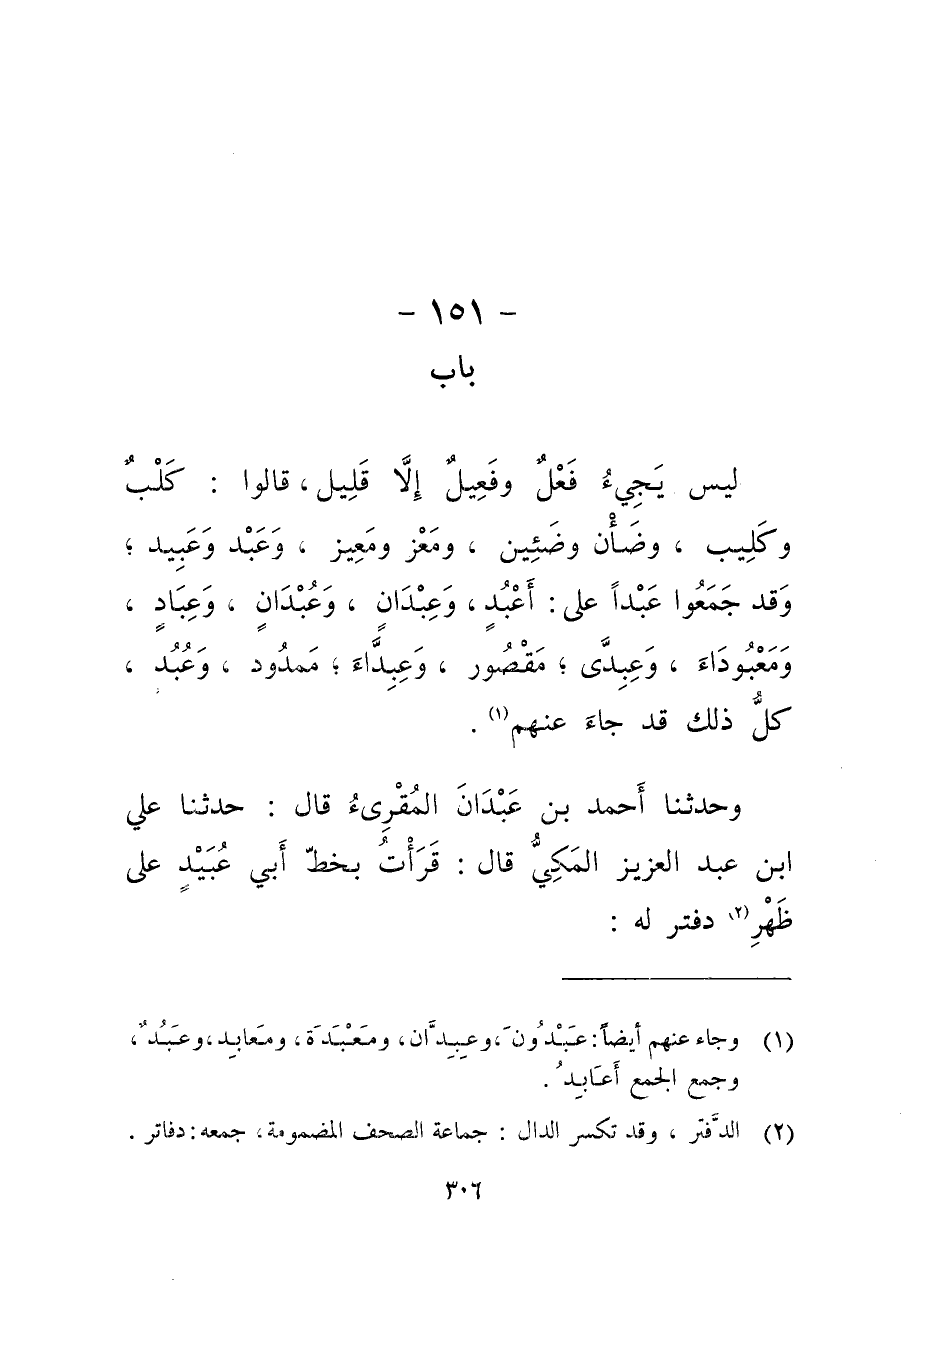 - ١٥١ -
باب
ليس يَجِيءُ فَعْلٌ وفَعِيلٌ إِلَّا قَلِيل، قالوا : كَلْبٌ
وكَلِيب ، وضَأْن وضَئِين ، ومَعْز ومَعِيز ، وَعَبْد وَعَبِيد ؛
وَقد جَمَعُوا عَبْداً على: أَعْبُدٍ، وَعِبْدَانٍ ، وَعُبْدَانٍ ، وَعِبَادٍ ،
وَمَعْبُودَاءَ ، وَعِبِدَّى ؛ مَقْصُور ، وَعِبِدَّاءَ ؛ مَمدُود ، وَعُبُد ،
كلُّ ذلك قد جاءَ عنهم(١) .
وحدثنا أَحمد بن عَبْدَانَ المُقْرِىءُ قال : حدثنا علي
ابن عبد العزيز المَكِيُّ قال : قَرَأْتُ بخطّ أَبي عُبَيْدٍ على
ظَهْرِ(٢) دفتر له :
(١) وجاء عنهم أيضاً: عَبْدُونَ، وعِبِدَّان، ومَعْبَدَة، ومَعابِد، وعَبُدٌ،
وجمع الجمع أَعَابِدُ .
(٢) الدَّفتر ، وقد تكسر الدال : جماعة الصحف المضمومة، جمعه: دفاتر .
٣٠٦